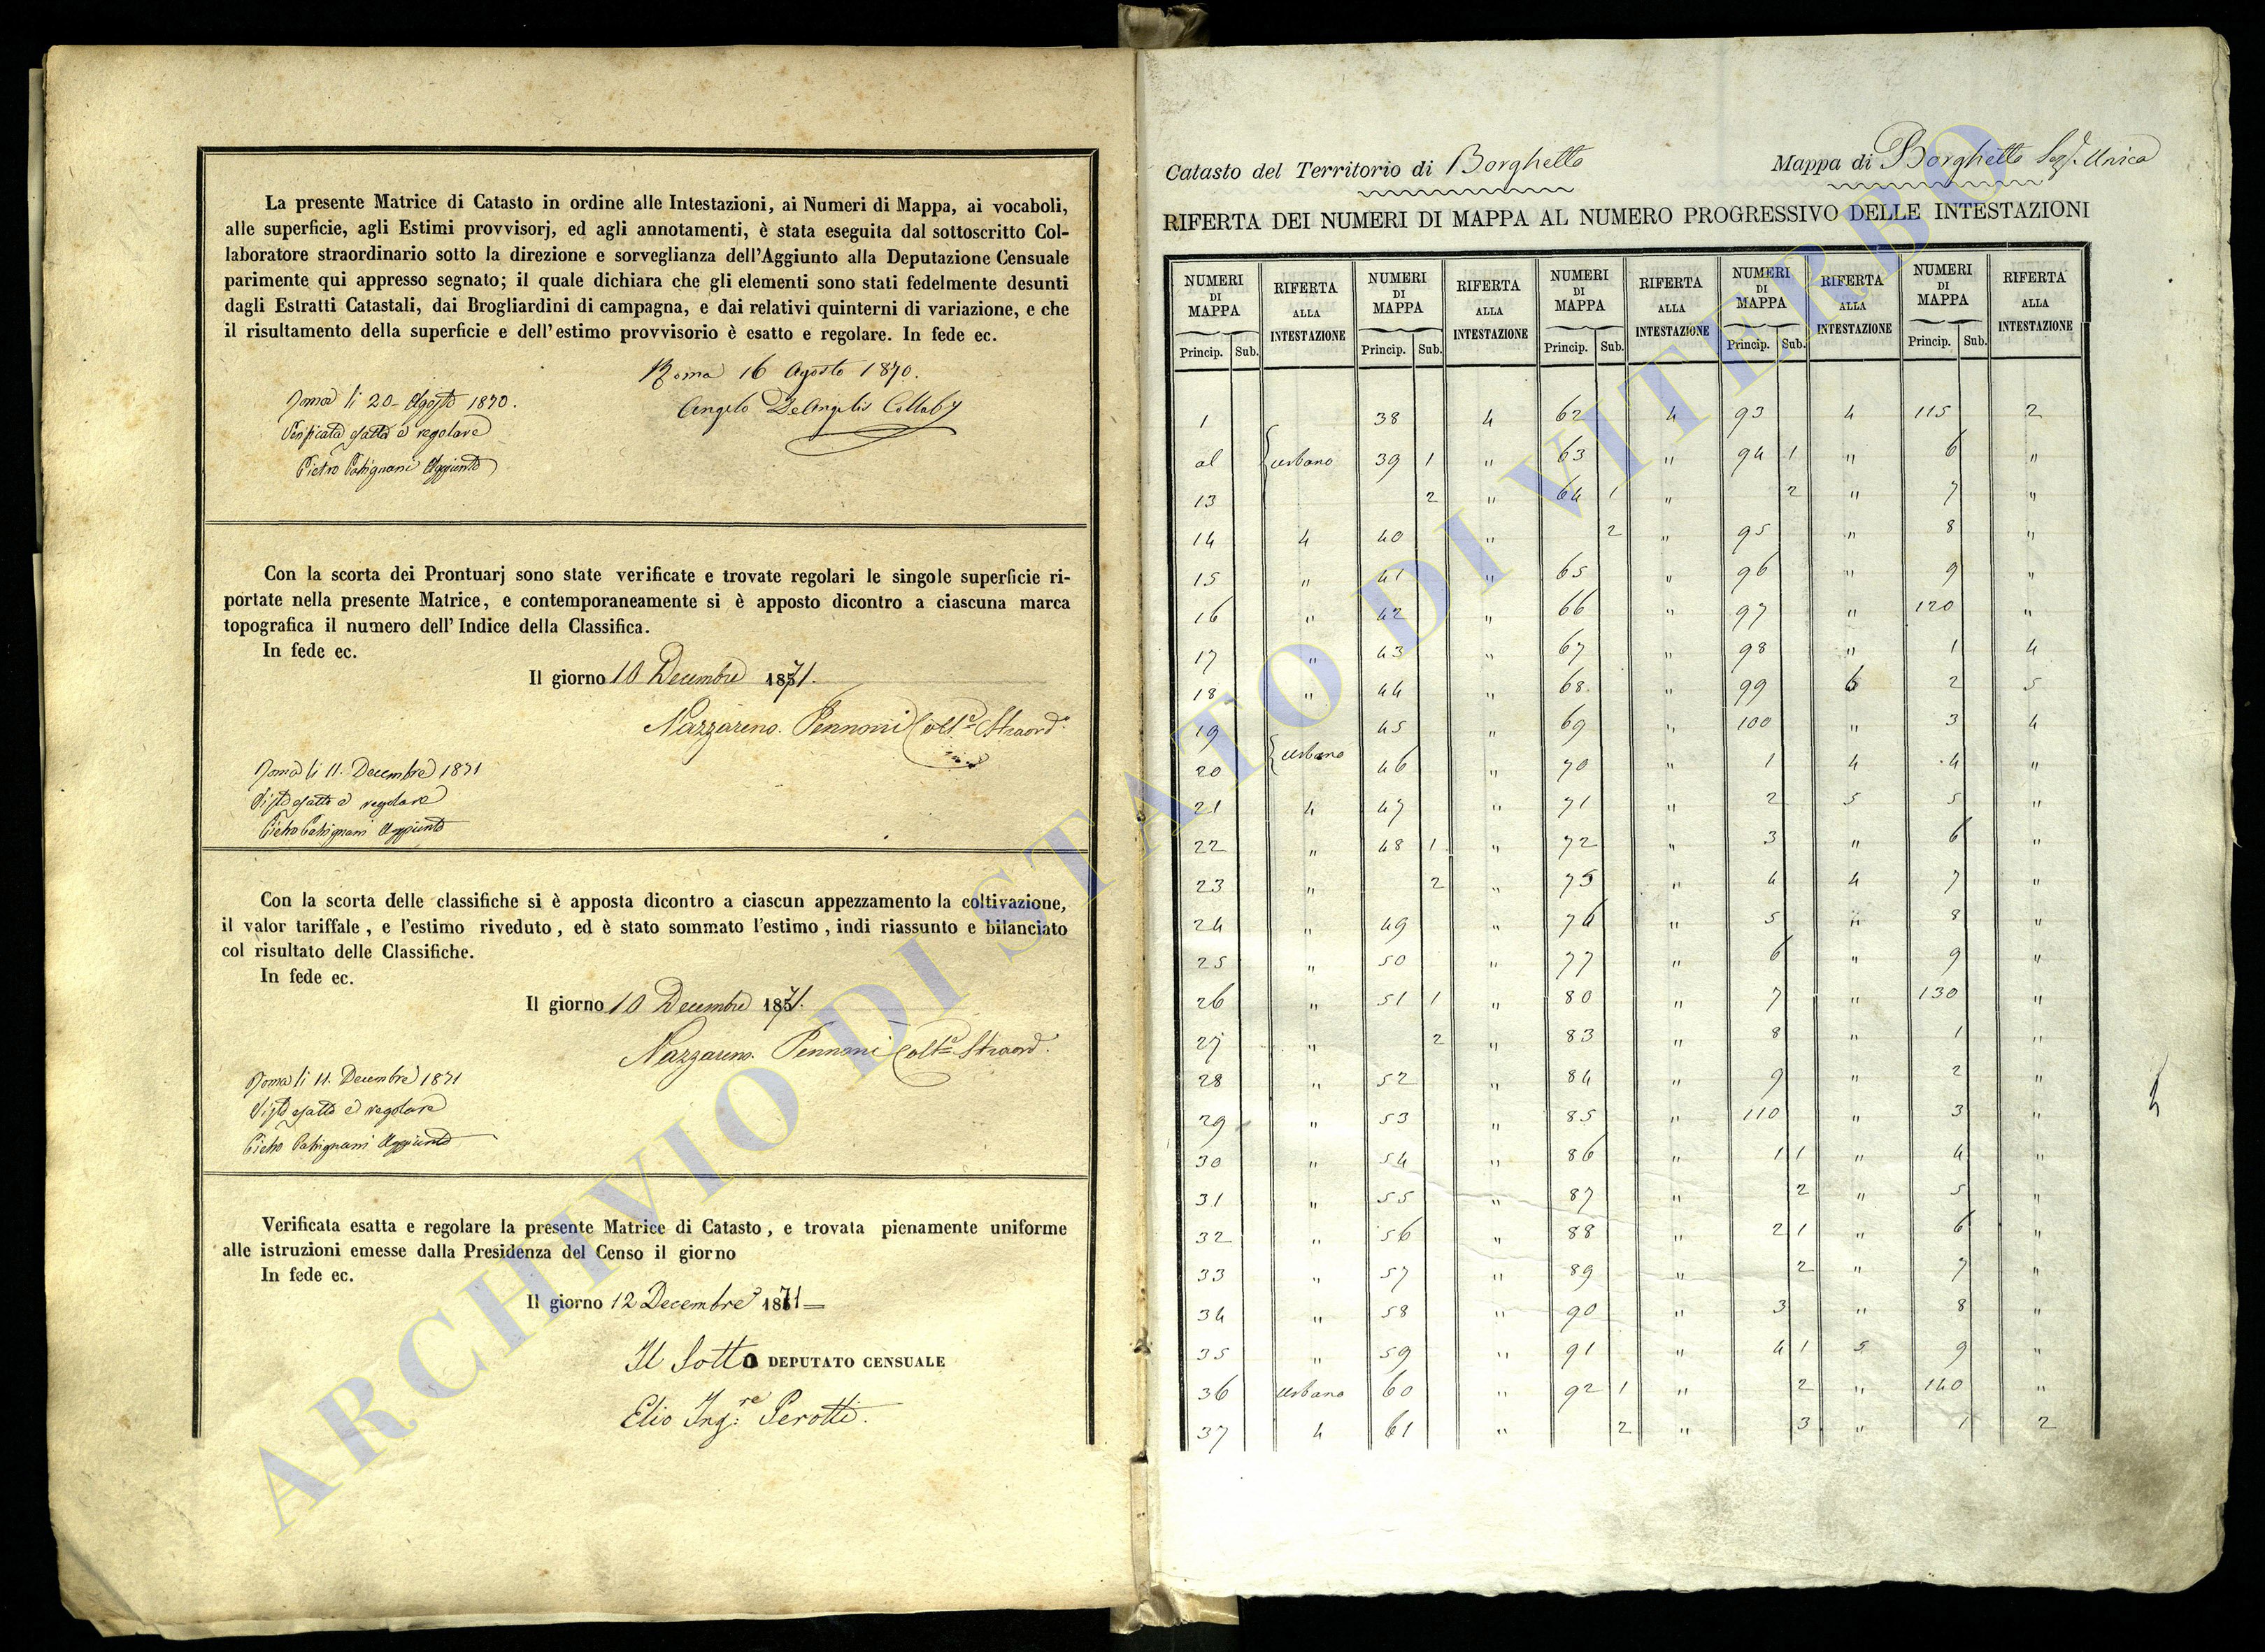 La presente Matrice di Catasto in ordine alle Intestazioni, ai Numeri di Mappa, ai vocaboli,
alle superficie, agli Estimi provvisorj, ed agli annotamenti, è stata eseguita dal sottoscritto Col-
laboratore straordinario sotto la direzione e sorveglianza dell'Aggiunto alla Deputazione Censuale
parimente qui appresso segnato; il quale dichiara che gli elementi sono stati fedelmente desunti
dagli Estratti Catastali, dai Brogliardini di campagna, e dai relativi quinterni di variazione, e che
il risultamento della superficie e dell'estimo provvisorio è esatto e regolare. In fede ec.
Roma 16 Agosto 1870.
Angelo DeAngelis Collab
Roma li 20 Agosto 1870.
Verificata esatta e regolare
Pietro Patrignani Aggiunto
Con la scorta dei Prontuarj sono state verificate e trovate regolari le singole superficie ri-
portate nella presente Matrice, e contemporaneamente si è apposto dicontro a ciascuna marca
topografica il numero dell'Indice della Classifica.
In fede ec.
Il giorno 10 Decembre 1871.
Nazzareno Pennoni Coll.e Straord.
Roma li 11. Decembre 1871
Visto esatto e regolare
Pietro Patrignani Aggiunto
Con la scorta delle classifiche si è apposta dicontro a ciascun appezzamento la coltivazione,
il valor tariffale, e l'estimo riveduto, ed è stato sommato l'estimo, indi riassunto e bilanciato
col risultato delle Classifiche.
In fede ec.
Il giorno 10 Decembre 1871.
Nazzareno Pennoni Coll.e Straord.
Roma li 11. Decembre 1871
Visto esatto e regolare
Pietro Patrignani Aggiunto
Verificata esatta e regolare la presente Matrice di Catasto, e trovata pienamente uniforme
alle istruzioni emesse dalla Presidenza del Censo il giorno
In fede ec.
Il giorno 12 Decembre 1871
Il Sotto DEPUTATO CENSUALE
Elio Ing:re Perotti.
Catasto del Territorio di Borghetto Mappa di Borghetto Sez. Unica
RIFERTA DEI NUMERI DI MAPPA AL NUMERO PROGRESSIVO DELLE INTESTAZIONI
NUMERI DI MAPPA RIFERTA ALLA INTESTAZIONE NUMERI DI MAPPA RIFERTA ALLA INTESTAZIONE NUMERI DI MAPPA RIFERTA ALLA INTESTAZIONE NUMERI DI MAPPA RIFERTA ALLA INTESTAZIONE NUMERI DI MAPPA RIFERTA ALLA INTESTAZIONE
Princip. Sub. Princip. Sub. Princip. Sub. Princip. Sub. Princip. Sub.
1 38 4 62 4 93 4 115 2
al urbano 39 1 " 63 " 94 1 " 6 "
13 2 " 64 1 " 2 " 7 "
14 4 40 " 2 " 95 " 8 "
15 " 41 " 65 " 96 " 9 "
16 " 42 " 66 " 97 " 120 "
17 " 43 " 67 " 98 " 1 4
18 " 44 " 68 " 99 6 2 5
19 45 " 69 " 100 " 3 4
20 urbano 46 " 70 " 1 4 4 "
21 4 47 " 71 " 2 5 5 "
22 " 48 1 " 72 " 3 " 6 "
23 " 2 " 75 " 4 4 7 "
24 " 49 " 76 " 5 " 8 "
25 " 50 " 77 " 6 " 9 "
26 " 51 1 " 80 " 7 " 130 "
27 " 2 " 83 " 8 " 1 "
28 " 52 " 84 " 9 " 2 "
29 " 53 " 85 " 110 " 3 "
30 " 54 " 86 " 1 1 " 4 "
31 " 55 " 87 " 2 " 5 "
32 " 56 " 88 " 2 1 " 6 "
33 " 57 " 89 " 2 " 7 "
34 " 58 " 90 " 3 " 8 "
35 " 59 " 91 " 4 1 5 9 "
36 urbano 60 " 92 1 " 2 " 140 "
37 4 61 " 2 " 3 " 1 2
ARCHIVIO DI STATO DI VITERBO